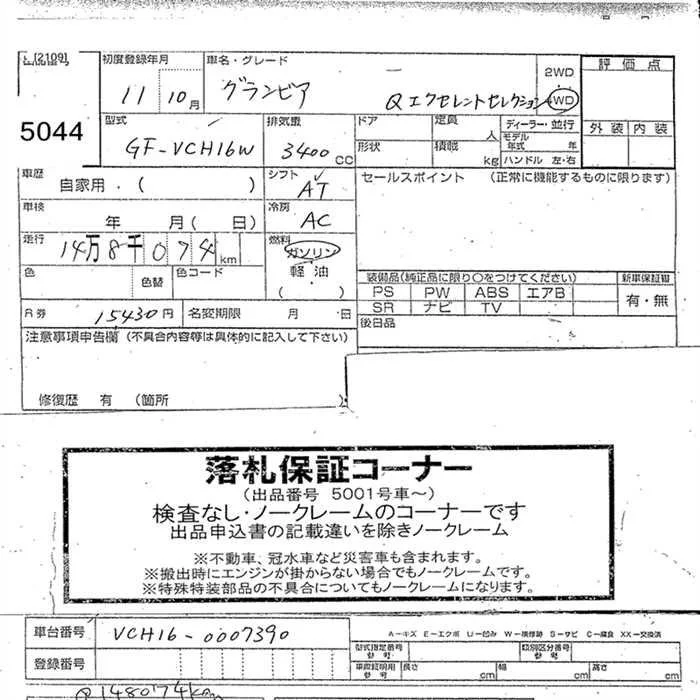 初度登録年月 車名・グレード 2WD 評価点
5044 11 10月 グランビア Qエクセレントセレクション 4WD
型式 排気量 ドア 定員 人 ディーラー・並行 外装 内装
GF-VCH16W 3400cc 形状 積載 kg モデル年式 年 ハンドル 左・右
車歴 自家用・( ) シフト AT セールスポイント (正常に機能するものに限ります)
車検 年 月( 日) 冷房 AC
走行 14万8千074km 燃料 ガソリン
軽油
( )
色 色替 色コード 装備品(純正品に限り○をつけてください) 新車保証書
PS PW ABS エアB 有・無
SR ナビ TV
R券 15430円 名変期限 月 日 後日品
注意事項申告欄 (不具合内容等は具体的に記入して下さい)
修復歴 有 (箇所 )
落札保証コーナー
(出品番号 5001号車~)
検査なし・ノークレームのコーナーです
出品申込書の記載違いを除きノークレーム
※不動車、冠水車など災害車も含まれます。
※搬出時にエンジンが掛からない場合でもノークレームです。
※特殊特装部品の不具合についてもノークレームになります。
車台番号 VCH16-0007390 A-キズ E-エクボ U-凹み W-補修跡 S-サビ C-腐食 XX-交換済
型式指定番号 参考 類別区分番号 参考
登録番号 車庫証明用 参考 長さ cm 幅 cm 高さ cm
148074km